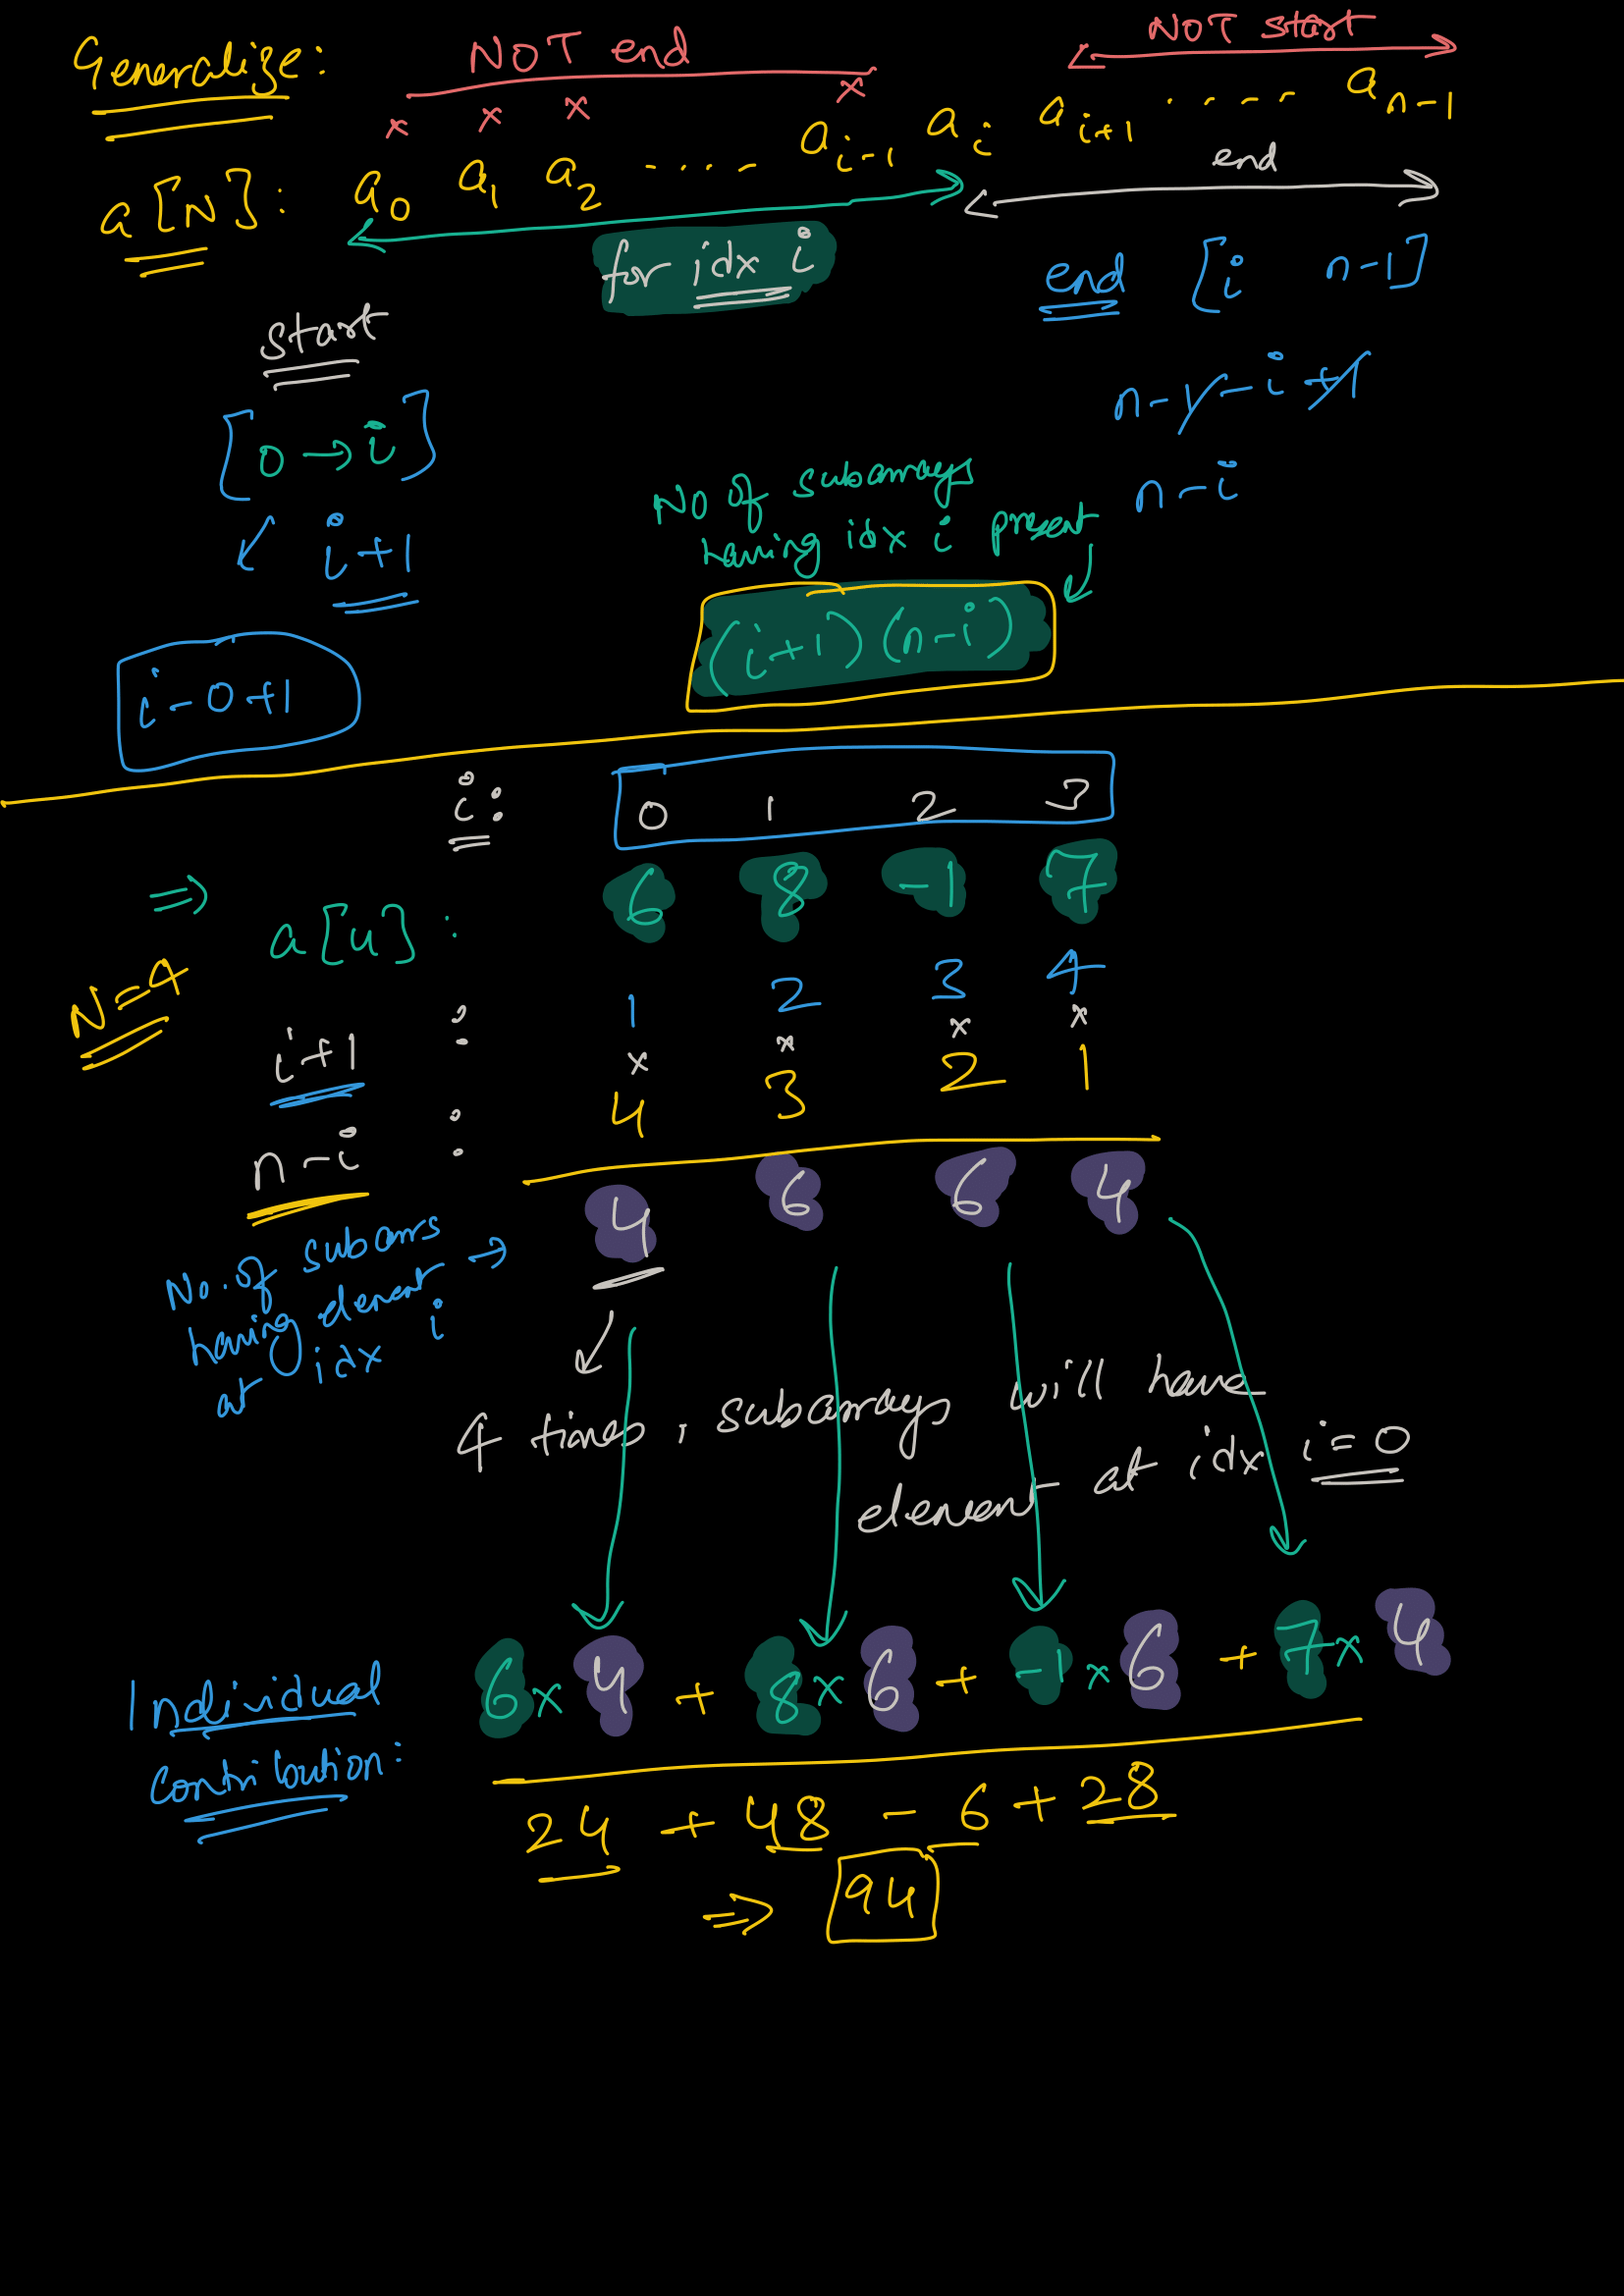 Generalize:
NOT end
NOT start
x x x x
a[N]: a0 a1 a2 ..... ai-1 ai ai+1 ..... an-1
end
for idx i
end [i n-1]
start
[0→i]
n-1-i+1
n-i
i+1
No of subarrays
having idx i present
(i+1)(n-i)
i-0+1
i: 0 1 2 3
⇒ a[4]: 6 8 -1 7
N=4
i+1 : 1 2 3 4
x x x x
n-i : 4 3 2 1
4 6 6 4
No. of subarrs →
having element
at idx i
4 times, subarrays will have
element at idx i=0
Individual
Contribution:
6x4 + 8x6 + -1x6 + 7x4
24 + 48 - 6 + 28
⇒ 94